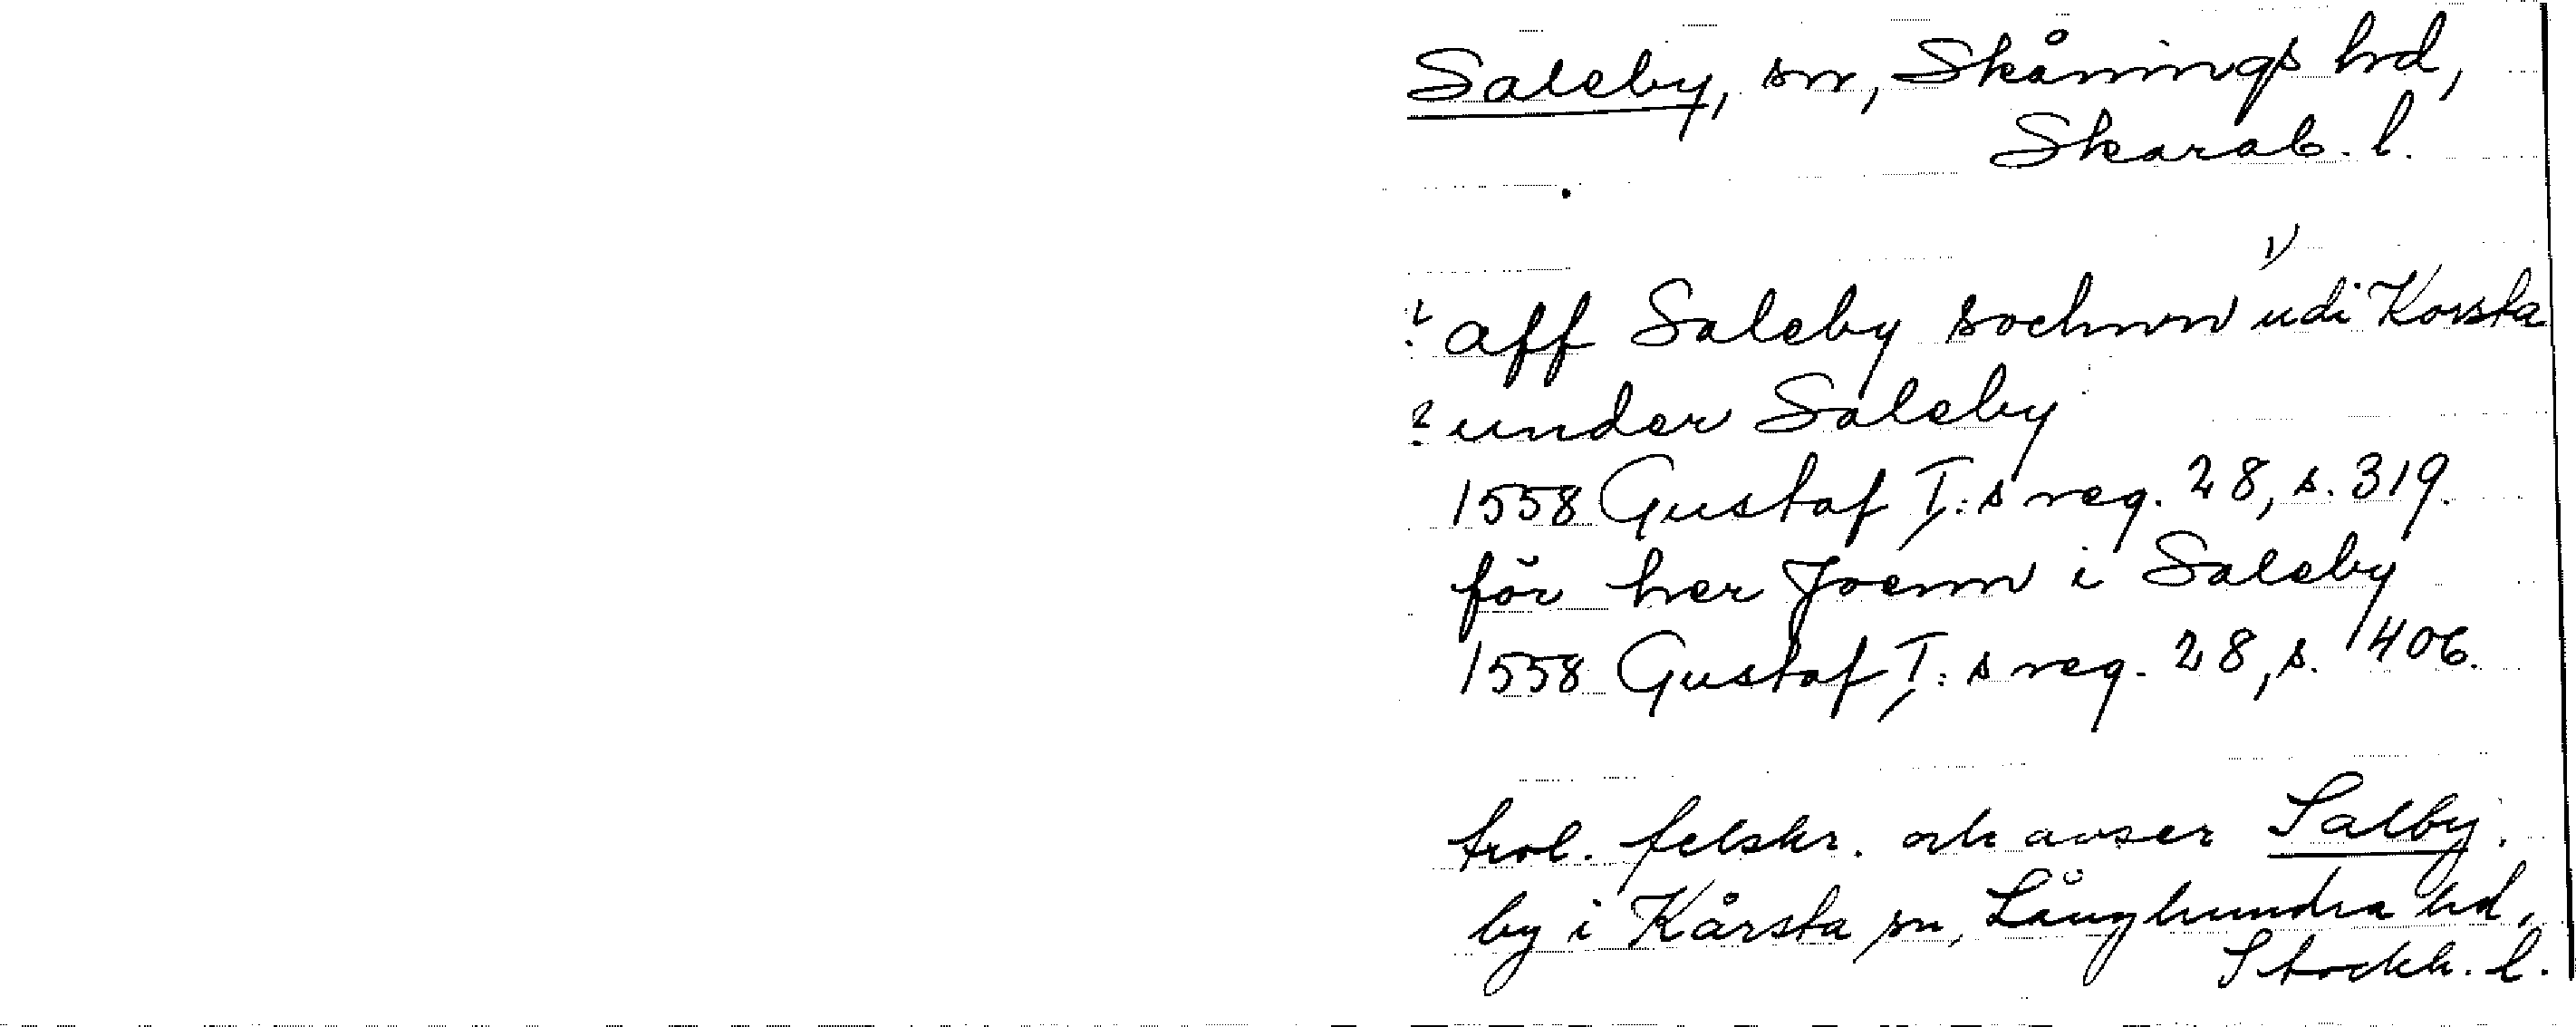 Saleby, sn, Skånings hd,
Skarab. l.
? aff Saleby sochnn 1) udi Korsta
? under Saleby
1558 Gustaf I:s reg. 28, s. 319.
för her Joenn i Saleby
1558 Gustaf I:s reg. 28, s. 406.
trol. felskr. och avser Salby.
by i Kårsta sn, Långhundra hd,
Stockh. l.